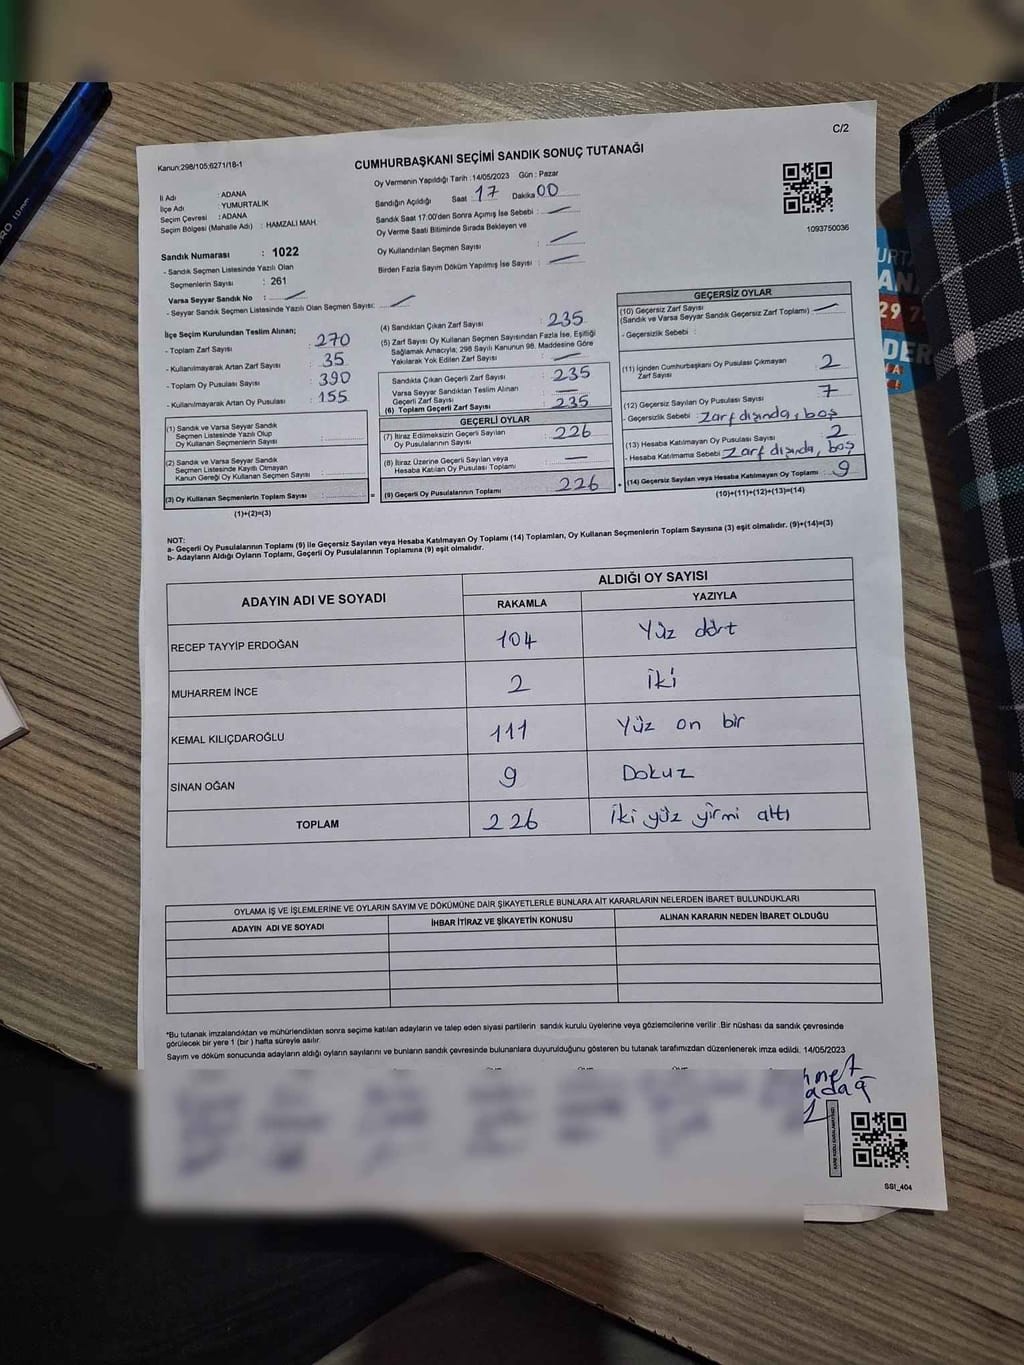 C/2
Kanun:298/105;6271/18-1
CUMHURBAŞKANI SEÇİMİ SANDIK SONUÇ TUTANAĞI
Oy Vermenin Yapıldığı Tarih :14/05/2023 Gün : Pazar
İl Adı : ADANA
İlçe Adı : YUMURTALIK
Seçim Çevresi : ADANA
Seçim Bölgesi (Mahalle Adı) : HAMZALI MAH.
Sandığın Açıldığı Saat 17 Dakika 00
Sandık Saat 17:00'den Sonra Açımış İse Sebebi :
Oy Verme Saati Bitiminde Sırada Bekleyen ve
Oy Kullandırılan Seçmen Sayısı :
Birden Fazla Sayım Döküm Yapılmış İse Sayısı :
1093750036
Sandık Numarası : 1022
- Sandık Seçmen Listesinde Yazılı Olan
Seçmenlerin Sayısı : 261
Varsa Seyyar Sandık No :
- Seyyar Sandık Seçmen Listesinde Yazılı Olan Seçmen Sayısı:
İlçe Seçim Kurulundan Teslim Alınan;
- Toplam Zarf Sayısı : 270
- Kullanılmayarak Artan Zarf Sayısı : 35
- Toplam Oy Pusulası Sayısı : 390
- Kullanılmayarak Artan Oy Pusulası : 155
(1) Sandık ve Varsa Seyyar Sandık
Seçmen Listesinde Yazılı Olup
Oy Kullanan Seçmenlerin Sayısı :
(2) Sandık ve Varsa Seyyar Sandık
Seçmen Listesinde Kayıtlı Olmayan
Kanun Gereği Oy Kullanan Seçmen Sayısı :
(3) Oy Kullanan Seçmenlerin Toplam Sayısı : =
(1)+(2)=(3)
(4) Sandıktan Çıkan Zarf Sayısı : 235
(5) Zarf Sayısı Oy Kullanan Seçmen Sayısından Fazla İse, Eşitliği
Sağlamak Amacıyla; 298 Sayılı Kanunun 98. Maddesine Göre
Yakılarak Yok Edilen Zarf Sayısı :
Sandıkta Çıkan Geçerli Zarf Sayısı : 235
Varsa Seyyar Sandıktan Teslim Alınan
Geçerli Zarf Sayısı :
(6) Toplam Geçerli Zarf Sayısı : 235
GEÇERLİ OYLAR
(7) İtiraz Edilmeksizin Geçerli Sayılan
Oy Pusulalarının Sayısı : 226
(8) İtiraz Üzerine Geçerli Sayılan veya
Hesaba Katılan Oy Pusulası Toplamı :
(9) Geçerli Oy Pusulalarının Toplamı : 226 +
GEÇERSİZ OYLAR
(10) Geçersiz Zarf Sayısı
(Sandık ve Varsa Seyyar Sandık Geçersiz Zarf Toplamı) :
- Geçersizlik Sebebi :
(11) İçinden Cumhurbaşkanı Oy Pusulası Çıkmayan
Zarf Sayısı : 2
(12) Geçersiz Sayılan Oy Pusulası Sayısı : 7
- Geçersizlik Sebebi : Zarf dışında, boş
(13) Hesaba Katılmayan Oy Pusulası Sayısı : 2
- Hesaba Katılmama Sebebi : Zarf dışında, boş
(14) Geçersiz Sayılan veya Hesaba Katılmayan Oy Toplamı : 9
(10)+(11)+(12)+(13)=(14)
NOT:
a- Geçerli Oy Pusulalarının Toplamı (9) ile Geçersiz Sayılan veya Hesaba Katılmayan Oy Toplamı (14) Toplamları, Oy Kullanan Seçmenlerin Toplam Sayısına (3) eşit olmalıdır. (9)+(14)=(3)
b- Adayların Aldığı Oyların Toplamı, Geçerli Oy Pusulalarının Toplamına (9) eşit olmalıdır.
ADAYIN ADI VE SOYADI
ALDIĞI OY SAYISI
RAKAMLA YAZIYLA
RECEP TAYYİP ERDOĞAN 104 Yüz dört
MUHARREM İNCE 2 İki
KEMAL KILIÇDAROĞLU 111 Yüz on bir
SİNAN OĞAN 9 Dokuz
TOPLAM 226 İki yüz yirmi altı
OYLAMA İŞ VE İŞLEMLERİNE VE OYLARIN SAYIM VE DÖKÜMÜNE DAİR ŞİKAYETLERLE BUNLARA AİT KARARLARIN NELERDEN İBARET BULUNDUKLARI
ADAYIN ADI VE SOYADI İHBAR İTİRAZ VE ŞİKAYETİN KONUSU ALINAN KARARIN NEDEN İBARET OLDUĞU
*Bu tutanak imzalandıktan ve mühürlendikten sonra seçime katılan adayların ve talep eden siyasi partilerin sandık kurulu üyelerine veya gözlemcilerine verilir .Bir nüshası da sandık çevresinde
görülecek bir yere 1 (bir ) hafta süreyle asılır.
Sayım ve döküm sonucunda adayların aldığı oyların sayılarını ve bunların sandık çevresinde bulunanlara duyurulduğunu gösteren bu tutanak tarafımızdan düzenlenerek imza edildi. 14/05/2023
SSI_404